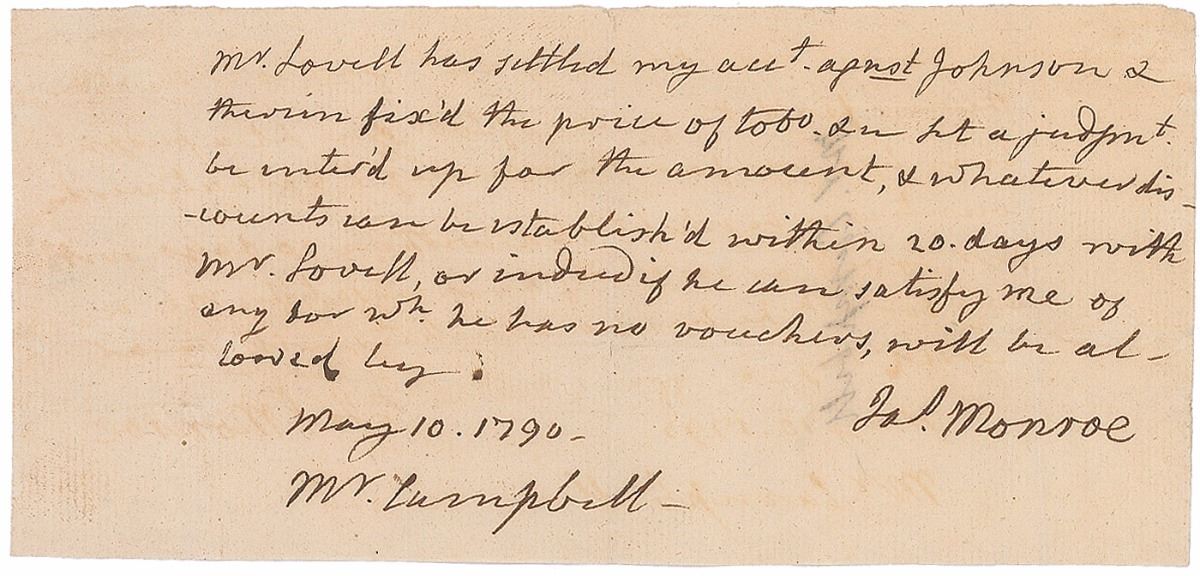 Mr. Lovell has settled my acct. agnst Johnson &
therein fix'd the price of tobo. & let a judgmt.
be enter'd up for the amount, & whatever dis-
-counts can be establish'd within 20. days with
Mr. Lovell, or indeed if he can satisfy me of
any for wh. he has no vouchers, will be al-
lowed by
Jas. Monroe
May 10. 1790-
Mr. Campbell-